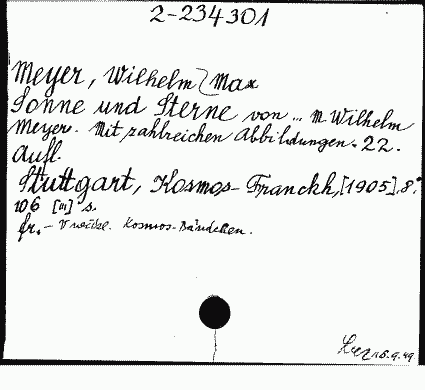 2-234301
Meyer, Wilhelm Max
Sonne und Sterne von ... M. Wilhelm
Meyer. Mit zahlreichen Abbildungen. 22.
Aufl.
Stuttgart, Kosmos-Franckh, [1905]. 8°.
106 [III] s.
fr. - Kosmos-Bändchen.
9.49